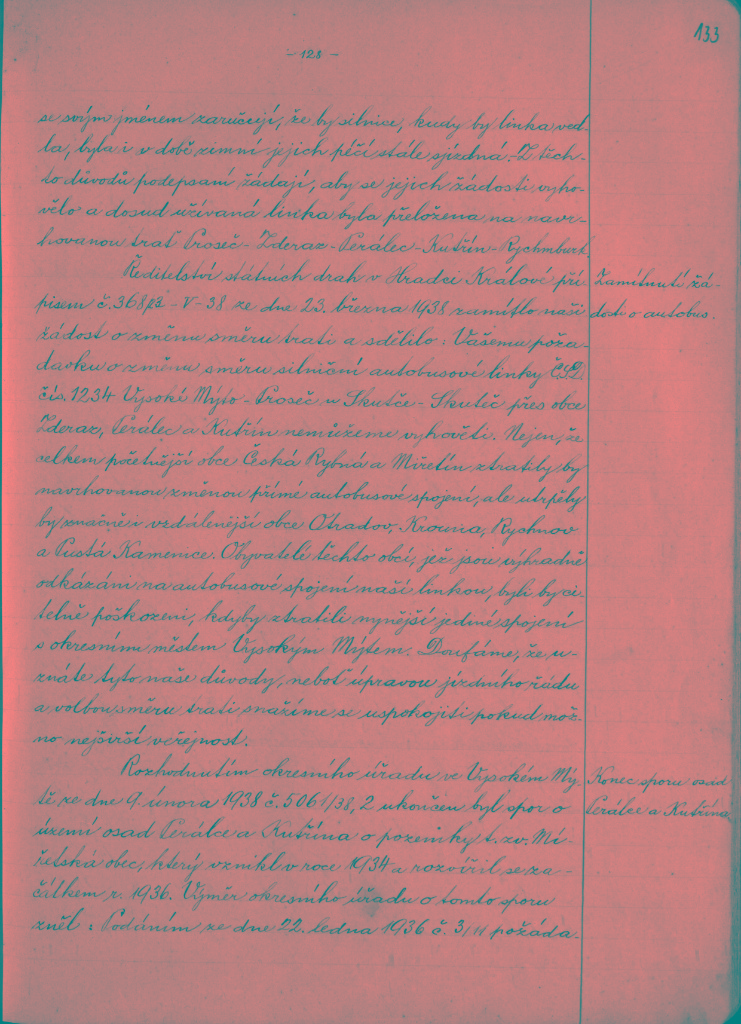 133
- 128 -
se svým jménem zaručují, že by silnice, kudy by linka ved-
la, byla i v době zimní jejich péčí stále sjízdná. Z těch-
to důvodů podepsaní žádají, aby se jejich žádosti vyho-
vělo a dosud užívaná linka byla přeložena na navr-
hovanou trať Proseč-Zderaz-Perálec-Kutřín-Rychmburk.
Ředitelství státních drah v Hradci Králové pří-
pisem č. 368 - V - 38 ze dne 23. března 1938 zamítlo naši
žádost o změnu směru trati a sdělilo: Vašemu poža-
davku o změnu směru silniční autobusové linky ČSD
čís. 1234 Vysoké Mýto - Proseč u Skutče - Skuteč přes obce
Zderaz, Perálec a Kutřín nemůžeme vyhověti. Nejen, že
celkem početnější obce Česká Rybná a Miřetín ztratily by
navrhovanou změnou přímé autobusové spojení, ale utrpěly
by značně i vzdálenější obce Otradov, Krouna, Rychnov
a Pustá Kamenice. Obyvatelé těchto obcí, jež jsou výhradně
odkázáni na autobusové spojení naší linkou, byli by ci-
telně poškozeni, kdyby ztratili nynější jediné spojení
s okresním městem Vysokým Mýtem. Doufáme, že u-
znáte tyto naše důvody, neboť úpravou jízdního řádu
a volbou směru trati snažíme se uspokojiti pokud mož-
no nejširší veřejnost.
Rozhodnutím okresního úřadu ve Vysokém Mý-
tě ze dne 9. února 1938 č. 5061/38, 2 ukončen byl spor o
území osad Perálce a Kutřína o pozemky t. zv. Mi-
řetská obec, který vznikl v roce 1934 a rozvířil se za-
čátkem r. 1936. Výměr okresního úřadu o tomto sporu
zněl: Podáním ze dne 22. ledna 1936 č. 3/11 požáda-
Zamítnutí žá-
dosti o autobus.
Konec sporu osad
Perálce a Kutřína